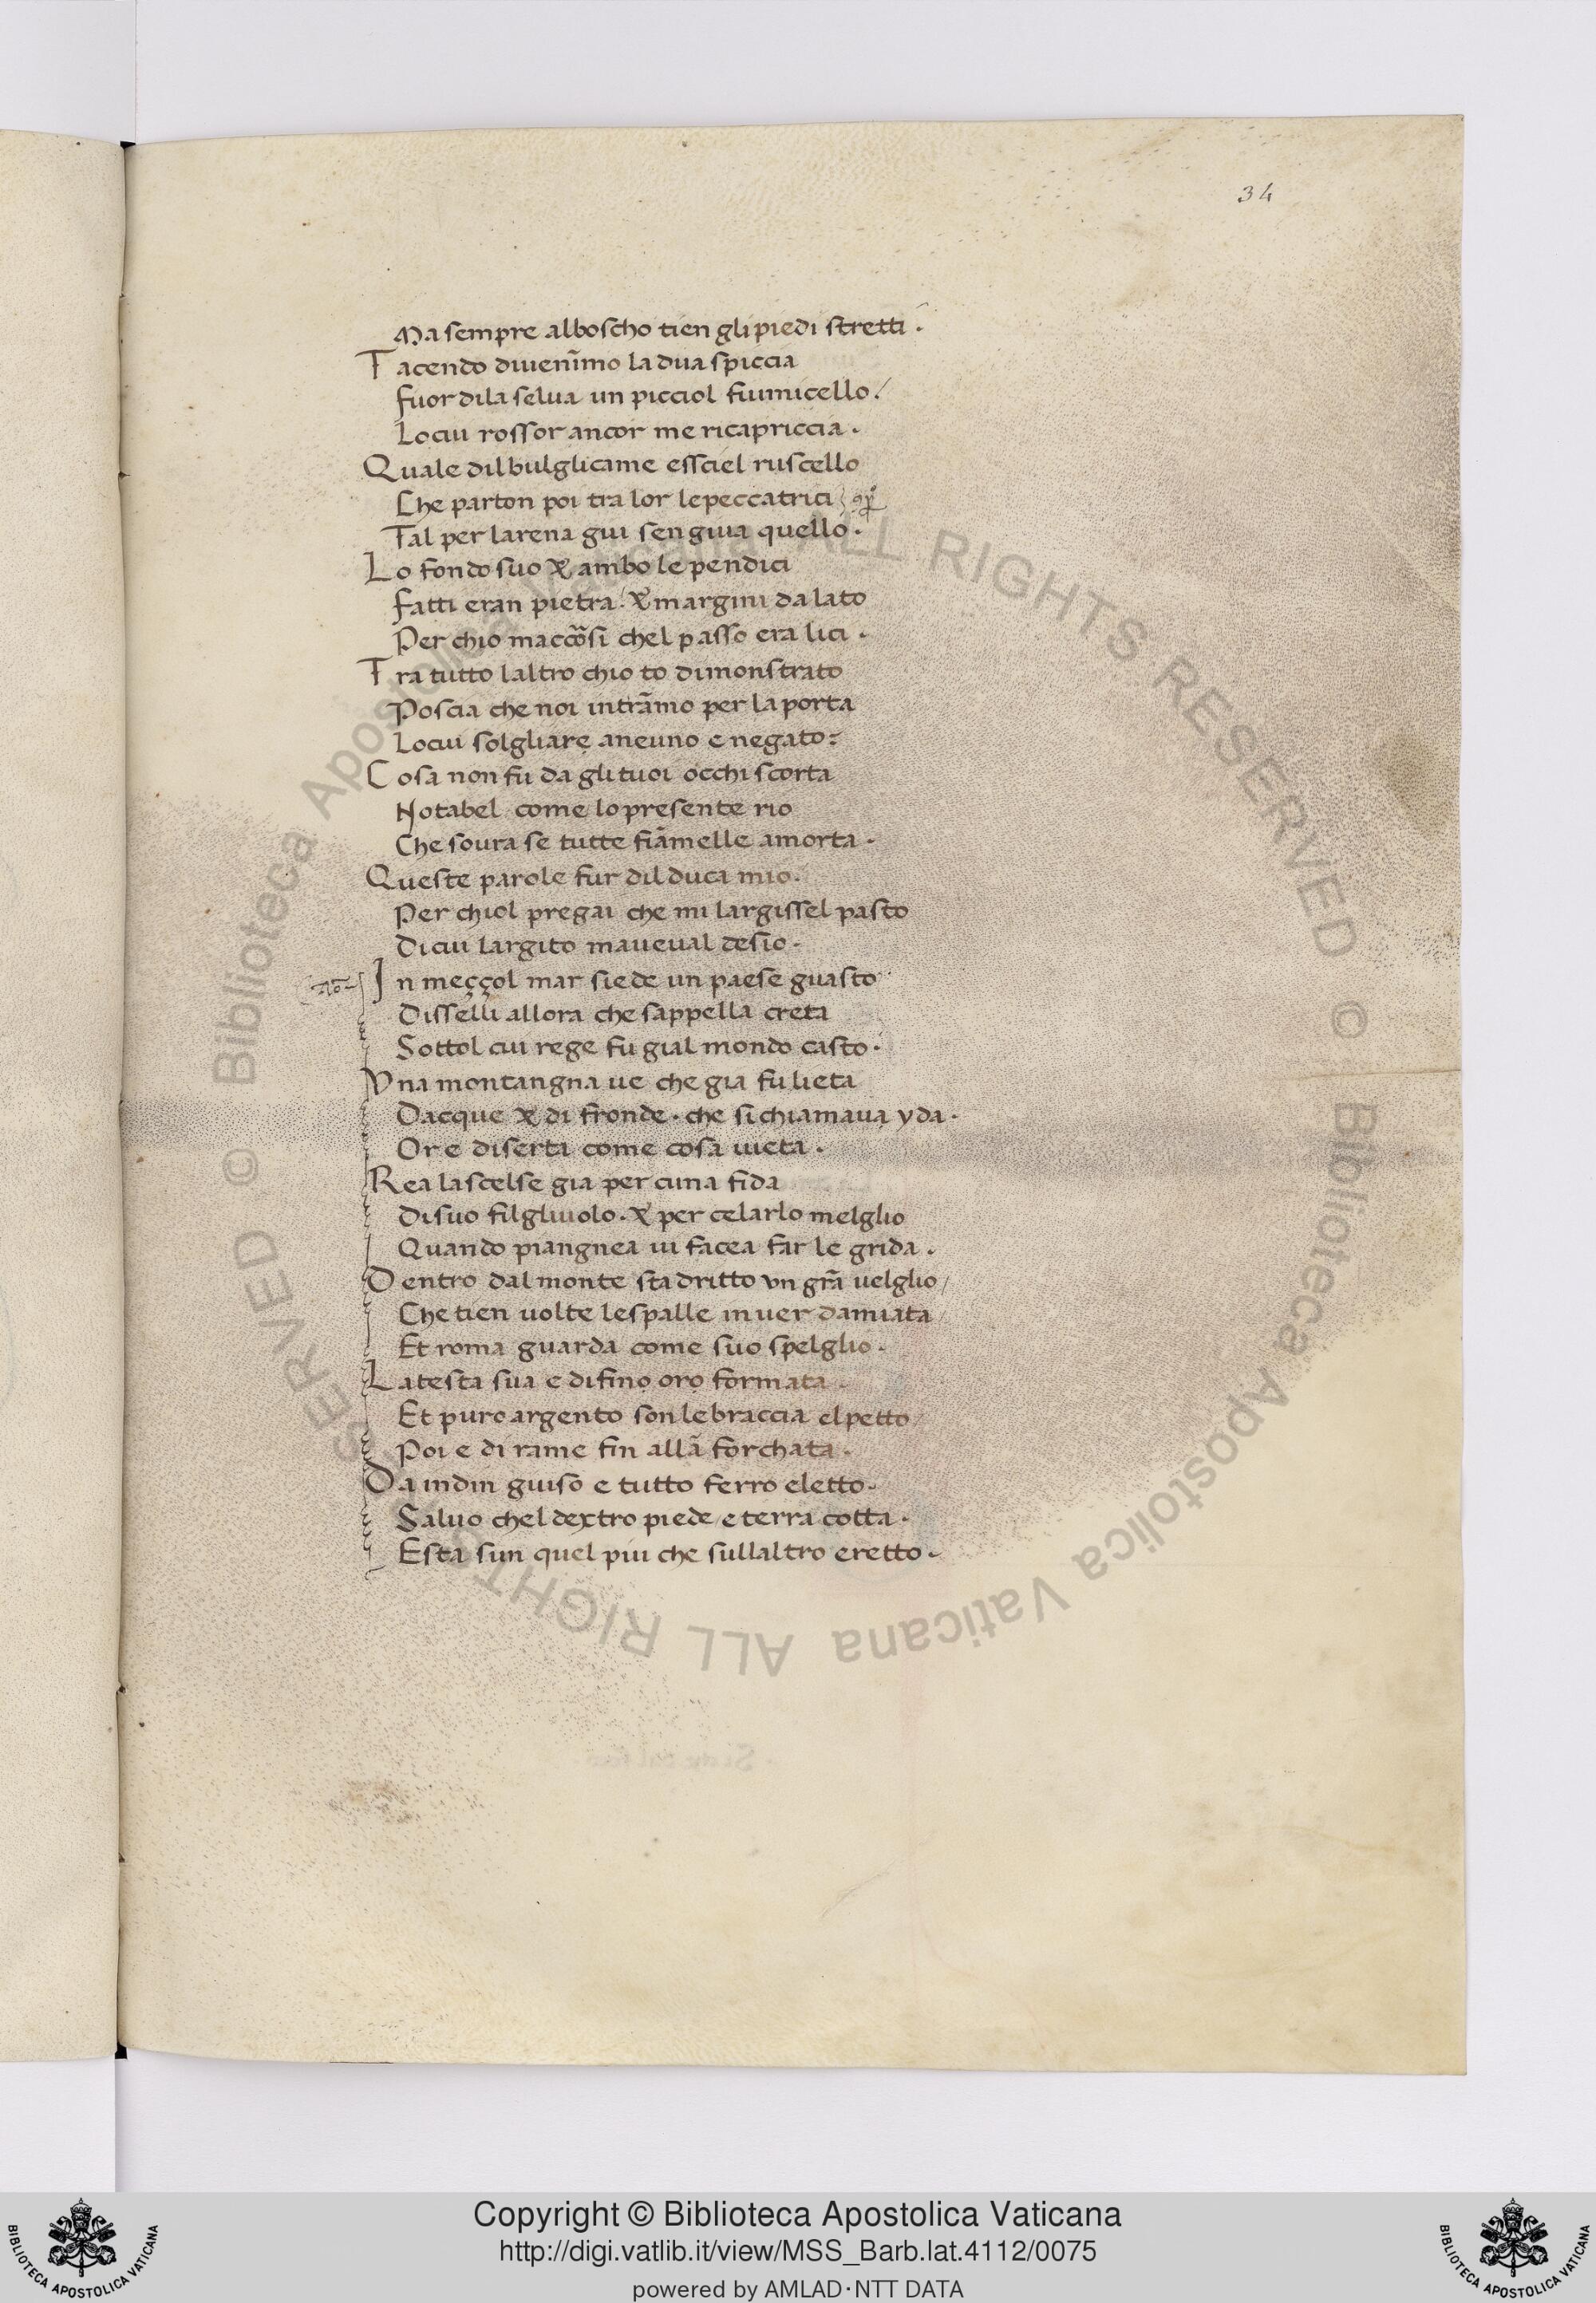 34
Ma sempre alboscho tien gli piedi stretti ·
Tacendo diuenīmo la dua spiccia
fuor dila selua un picciol fiumicello /
Locui rossor ancor me ricapriccia ·
Quale dil bulglicame essciel ruscello
Che parton poi tra lor le peccatrici
Tal per larena giu sen giua quello ·
Lo fondo suo & ambo le pendici
fatti eran pietra / & margini da lato
Per chio maccorsi chel passo era lici ·
Tra tutto laltro chio to dimonstrato
Poscia che noi intrāmo per la porta
Locui solgliare aneuno e negato :
Cosa non fu da gli tuoi occhi scorta
Notabel come lo presente rio
Che soura se tutte fiāmelle amorta ·
Queste parole fur dil duca mio ·
Per chiol pregai che mi largissel pasto
Di cui largito maueual desio ·
In meççol mar siede un paese guasto
Disselli allora che sappella creta
Sottol cui rege fu gial mondo casto ·
Vna montangna ue che gia fu lieta
Dacque & di fronde · che si chiamaua yda ·
Or e diserta come cosa uieta ·
Rea la scelse gia per cuna fida
Di suo filgliuolo · & per celarlo melglio
Quando piangnea ui facea far le grida ·
Dentro dal monte sta dritto vn grā uelglio /
Che tien uolte le spalle inuer damiata
Et roma guarda come suo spelglio ·
La testa sua e di fino oro formata ·
Et puro argento son le braccia el petto
Poi e di rame fin alla forchata ·
Da indin giuso e tutto ferro eletto ·
Saluo chel dextro piede e terra cotta ·
E sta sun quel piu che sullaltro eretto ·
© Biblioteca Apostolica Vaticana ALL RIGHTS RESERVED © Biblioteca Apostolica Vaticana ALL RIGHTS RESERVED
Copyright © Biblioteca Apostolica Vaticana
http://digi.vatlib.it/view/MSS_Barb.lat.4112/0075
powered by AMLAD·NTT DATA
BIBLIOTECA APOSTOLICA VATICANA
BIBLIOTECA APOSTOLICA VATICANA